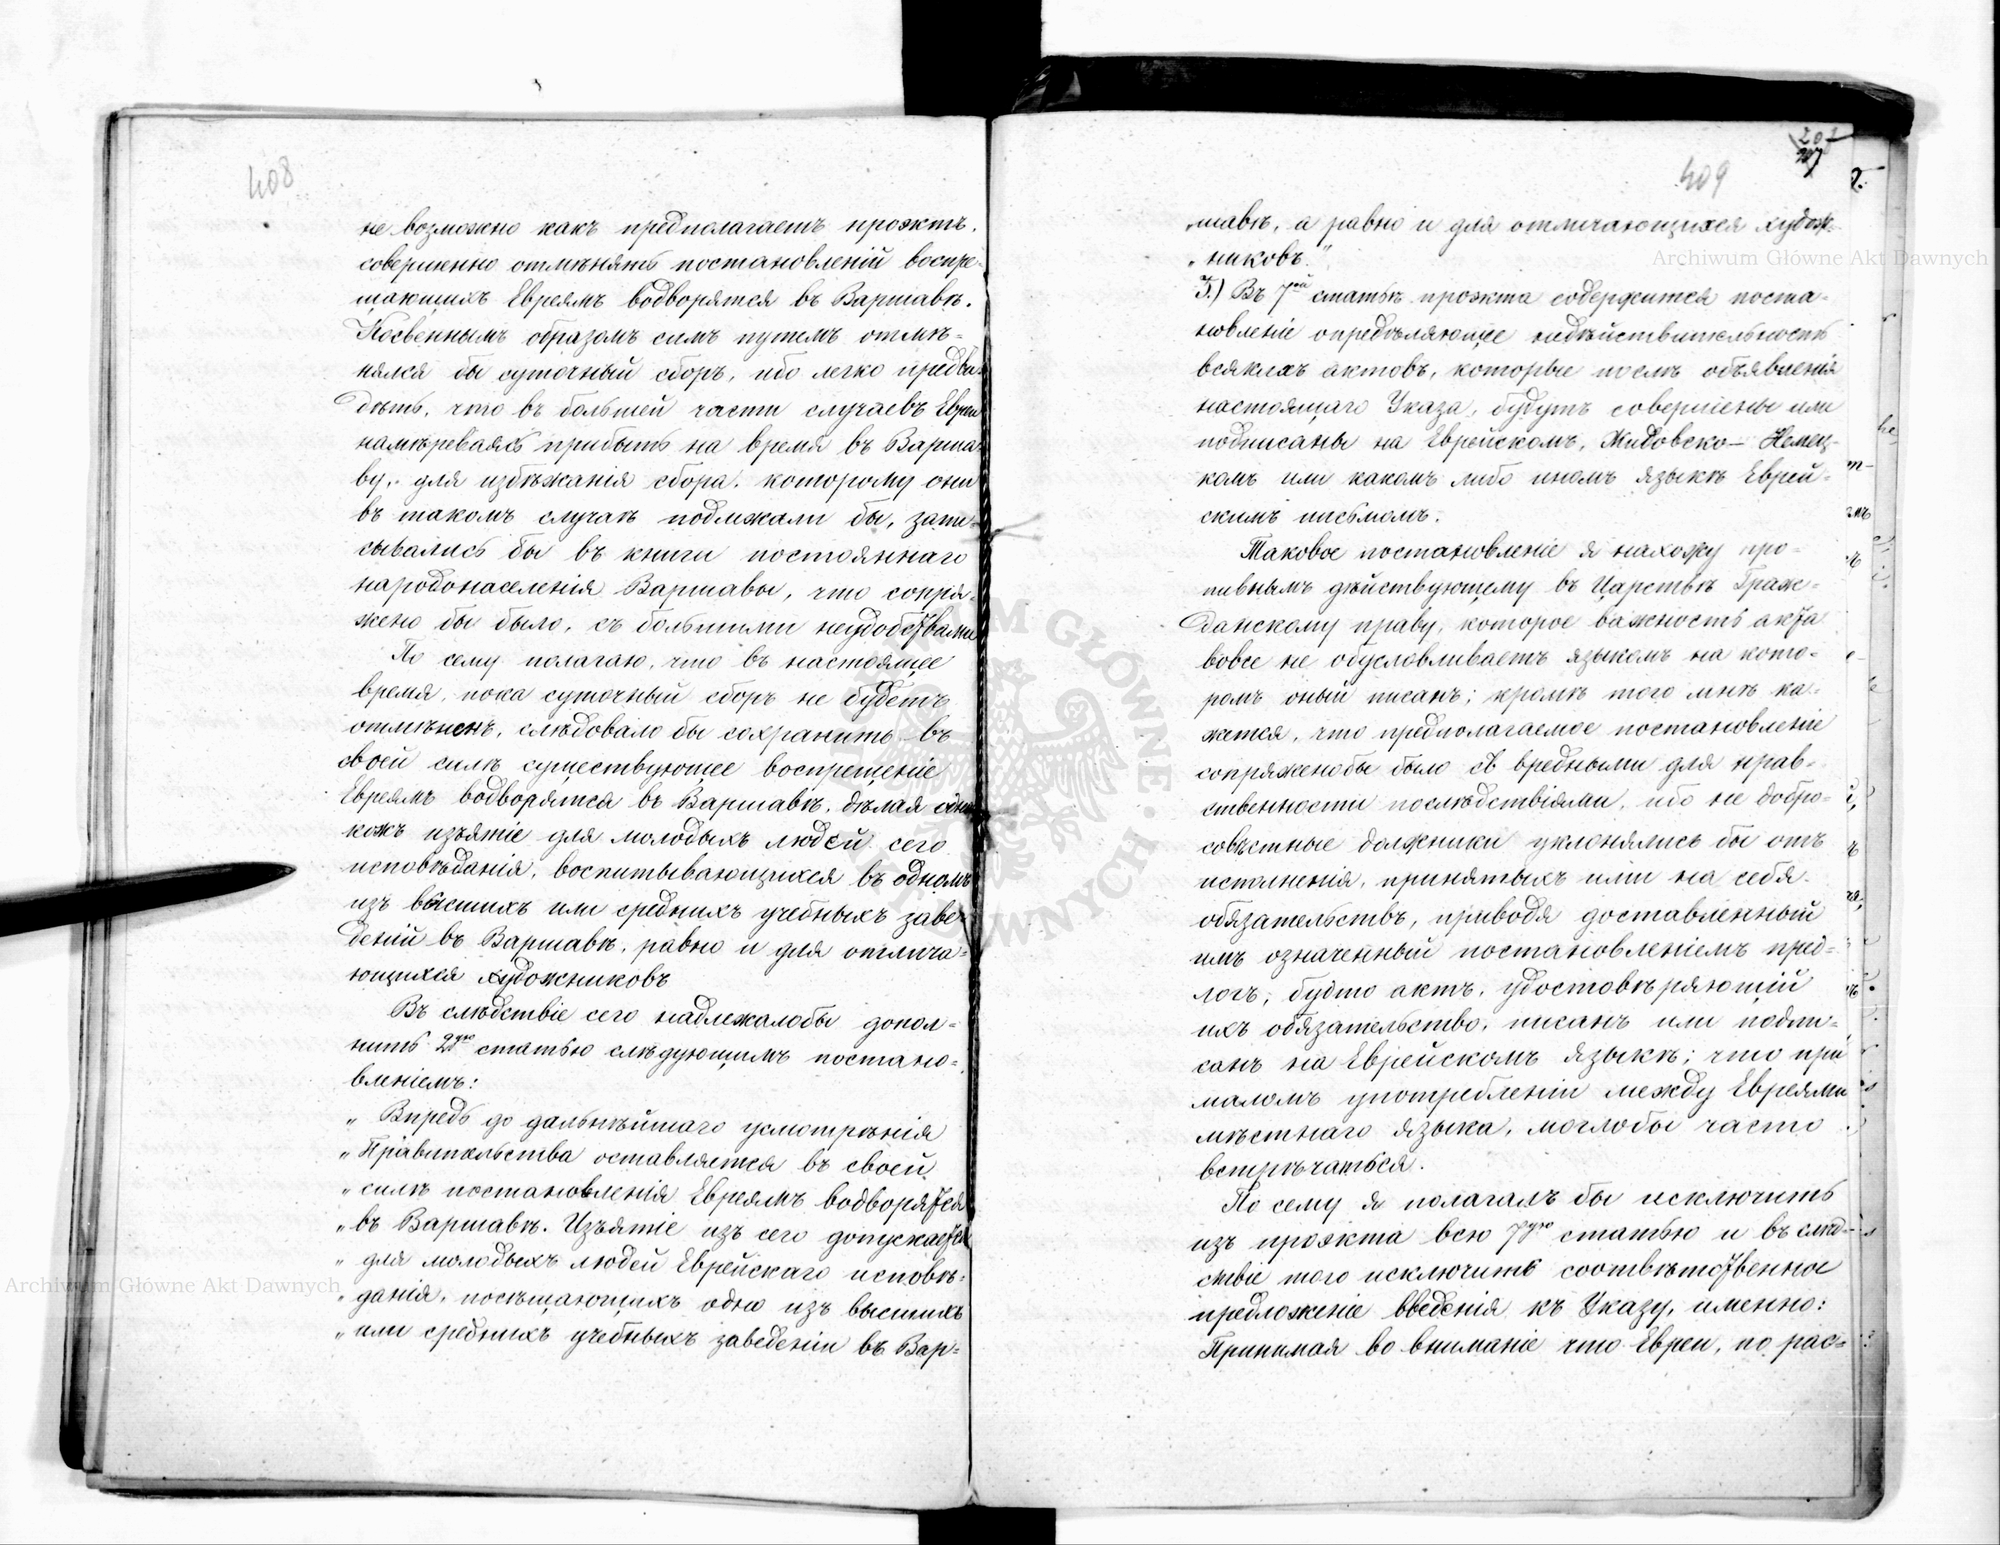 408
не возможно какъ предполагаетъ проэктъ,
совершенно отмѣнять постановленій воспре-
щающихъ Евреямъ водворятся въ Варшавѣ.
Косвеннымъ образомъ симъ путемъ отмѣ-
нялся бы суточный сборъ, ибо легко предви-
дѣть, что въ большей части случаевъ Евреи
намѣреваясь прибыть на время въ Варша-
ву, для избѣжанія сбора, которому они
въ такомъ случаѣ подлежали бы, запи-
сывались бы въ книги постояннаго
народонаселенія Варшавы, что сопря-
жено бы было, съ большими неудобствами
По сему полагаю, что въ настоящее
время, пока суточный сборъ не будетъ
отмѣненъ, слѣдовало бы сохранить въ
своей силѣ существующее воспрещеніе
Евреямъ водворятся въ Варшавѣ, дѣлая одна
кожъ изъятіе для молодыхъ людей сего
исповѣданія, воспитывающихся въ одномъ
изъ высшихъ или среднихъ учебныхъ заве-
деній въ Варшавѣ, равно и для отлича-
ющихся художниковъ
Въ слѣдствіе сего надлежалобы допол-
нить 2ую статью слѣдующимъ постано-
вленіемъ:
„ Впредь до дальнѣйшаго усмотрѣнія
„ Правительства оставляется въ своей
„ силѣ постановленія Евреямъ водворятся
„ въ Варшавѣ. Изъятіе изъ сего допускается
„ для молодыхъ людей Еврейскаго исповѣ-
„ данія, посѣщающихъ одно изъ высшихъ
„ или среднихъ учебныхъ заведеніи въ Вар-
409
„ шавѣ, а равно и для отличающихся худож-
„ никовъ."
3.) Въ 7ой статьѣ проэкта содержится поста-
новленіе опредѣляющее недѣйствительность
всякихъ актовъ, которые послѣ объявленія
настоящаго Указа, будутъ совершены или
подписаны на Еврейскомъ, Жидовско-Немец-
комъ или какомъ либо иномъ языкѣ Еврей-
скимъ письмомъ.
Таковое постановленіе я нахожу про-
тивнымъ дѣйствующему въ Царствѣ Граж-
данскому праву, которое важность акта
вовсе не обусловливаетъ языкомъ на кото-
ромъ оный писанъ; кромѣ того мнѣ ка-
жется, что предполагаемое постановленіе
сопряженобы было съ вредными для нрав-
ственности послѣдствіями, ибо не добро-
совѣстные должники уклонялись бы отъ
исполненія, принятыхъ ими на себя
обязательствъ, приводя доставленный
имъ означенный постановленіемъ пред-
логъ, будто актъ, удостовѣряющій
ихъ обязательство, писанъ или подпи-
санъ на Еврейскомъ языкѣ; что при
маломъ употребленіи между Евреями
мѣстнаго языка, моглобы часто
встрѣчаться.
По сему я полагалъ бы исключить
изъ проэкта всю 7ую статью и въ слѣд-
ствіе того исключить соотвѣтственное
предложеніе введенія къ Указу, именно:
Принимая во вниманіе что Евреи, по рас-
Archiwum Główne Akt Dawnych
Archiwum Główne Akt Dawnych